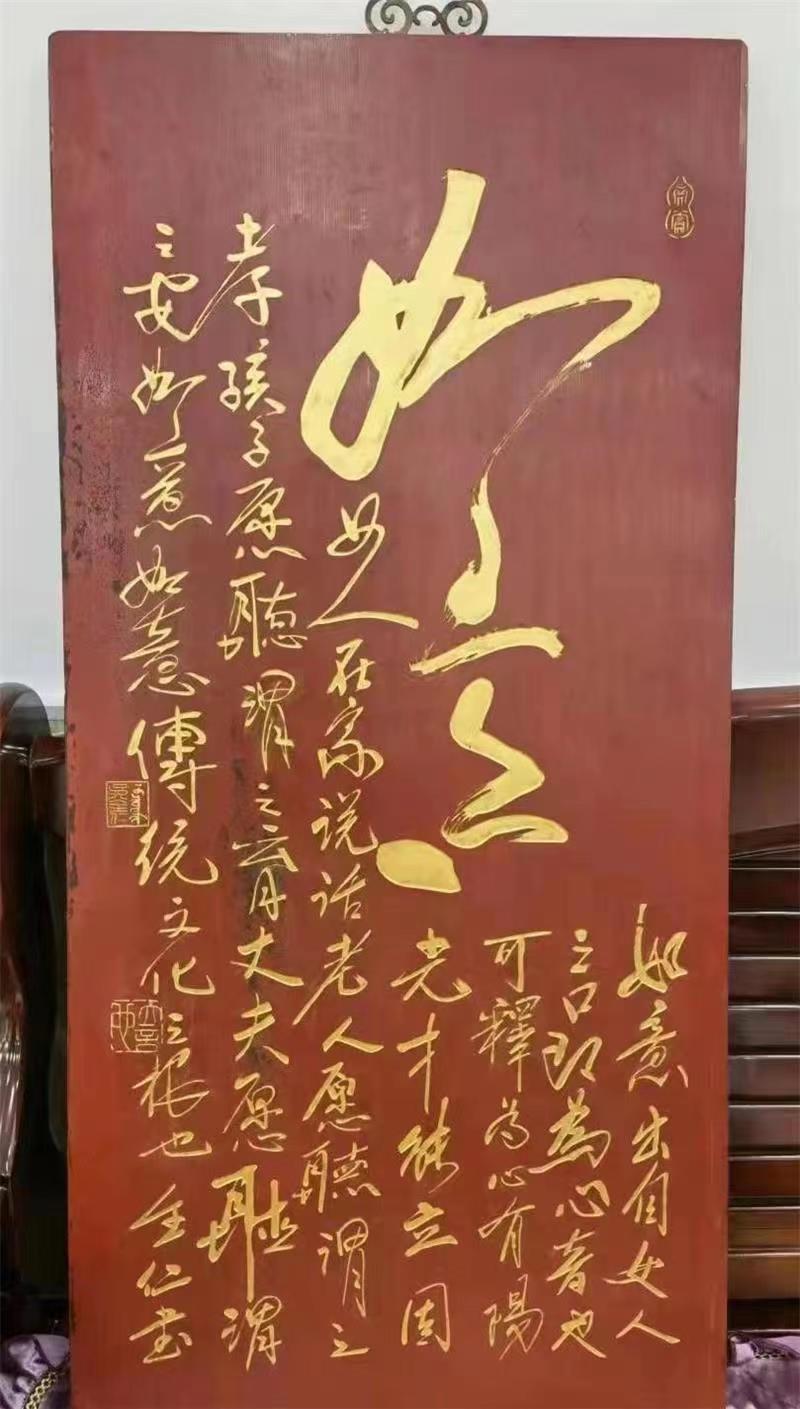 如意
如意出自女人
之口即為心音也
可釋為心有陽
光才能立因
女人在家说话老人愿聽謂之
孝孩子愿聽謂之育丈夫愿聽謂
之安如意如意傳统文化之根也全仁书